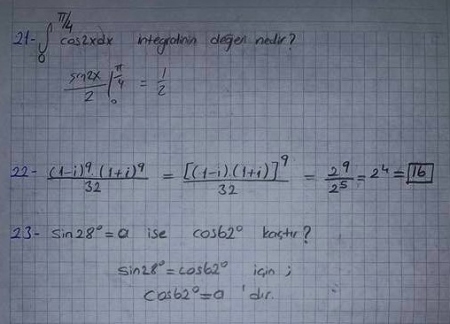 21- ∫₀^π/4 cos2xdx integralinin değeri nedir?
sin2x/2 |₀^π/4 = 1/2
22- (1-i)⁹.(1+i)⁹/32 = [(1-i).(1+i)]⁹/32 = 2⁹/2⁵ = 2⁴ = 16
23- sin28°=a ise cos62° kaçtır?
sin28°=cos62° için ;
cos62°=a 'dır.